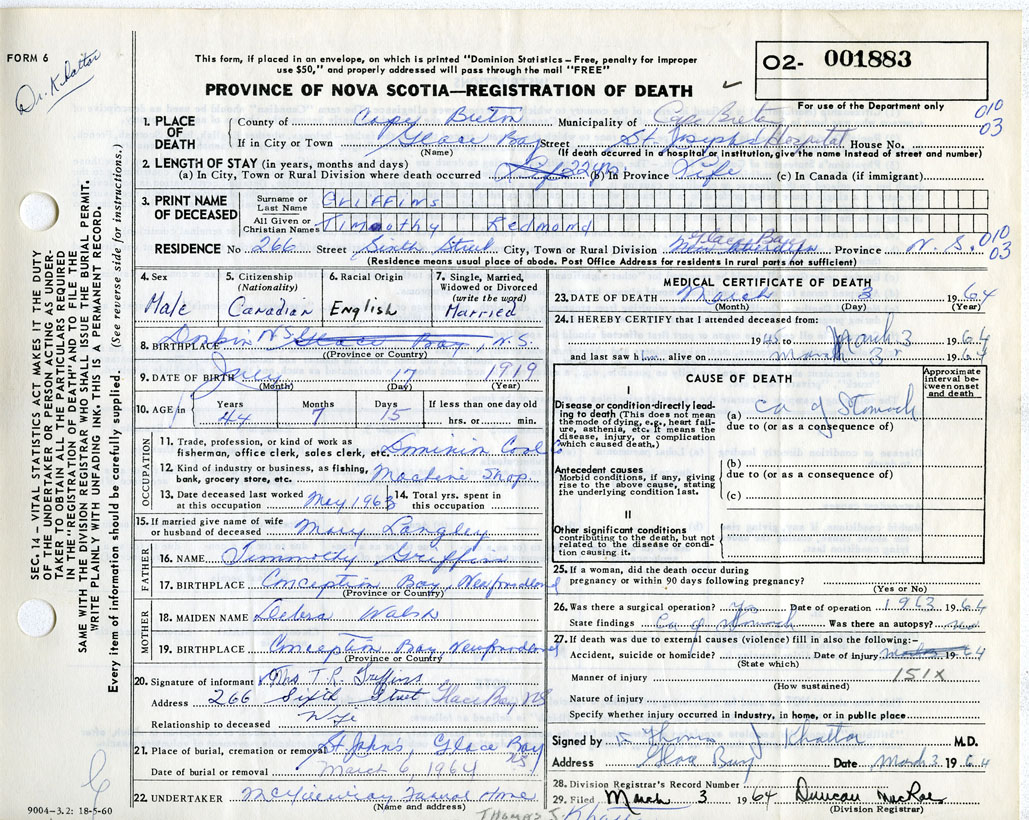 FORM 6
Dr. Khattar
This form, if placed in an envelope, on which is printed "Dominion Statistics – Free, penalty for improper
use $50," and properly addressed will pass through the mail "FREE"
PROVINCE OF NOVA SCOTIA—REGISTRATION OF DEATH
02- 001883
For use of the Department only
010
03
1. PLACE OF DEATH
County of Cape Breton Municipality of Cape Breton
If in City or Town Glace Bay Street St. Joseph's Hospital House No.
(Name) (If death occurred in a hospital or institution, give the name instead of street and number)
2. LENGTH OF STAY (in years, months and days)
(a) In City, Town or Rural Division where death occurred 22 yrs (b) In Province Life (c) In Canada (if immigrant)
3. PRINT NAME OF DECEASED
Surname or Last Name Griffins
All Given or Christian Names Timothy Redmond
RESIDENCE No. 266 Street Sixth Street City, Town or Rural Division Glace Bay Province N.S.
010
03
(Residence means usual place of abode. Post Office Address for residents in rural parts not sufficient)
SEC. 14 – VITAL STATISTICS ACT MAKES IT THE DUTY
OF THE UNDERTAKER OR PERSON ACTING AS UNDER-
TAKER TO OBTAIN ALL THE PARTICULARS REQUIRED
IN THE "REGISTRATION OF DEATH" AND TO FILE THE
SAME WITH THE DIVISION REGISTRAR WHO SHALL ISSUE THE BURIAL PERMIT.
WRITE PLAINLY WITH UNFADING INK. THIS IS A PERMANENT RECORD.
Every item of information should be carefully supplied. (See reverse side for instructions.)
4. Sex
Male
5. Citizenship
(Nationality)
Canadian
6. Racial Origin
English
7. Single, Married,
Widowed or Divorced
(write the word)
Married
8. BIRTHPLACE Donkin N.S. Glace Bay, N.S.
(Province or Country)
9. DATE OF BIRTH July 17 1919
(Month) (Day) (Year)
10. AGE in Years Months Days If less than one day old
44 7 15 hrs. or min.
OCCUPATION
11. Trade, profession, or kind of work as
fisherman, office clerk, sales clerk, etc. Dominion Coal
12. Kind of industry or business, as fishing,
bank, grocery store, etc. Machine Shop
13. Date deceased last worked at this occupation May 1963
14. Total yrs. spent in this occupation
15. If married give name of wife
or husband of deceased Mary Langley
FATHER
16. NAME Timmothy Griffins
17. BIRTHPLACE Conception Bay, Newfoundland
(Province or Country)
MOTHER
18. MAIDEN NAME Walsh
19. BIRTHPLACE Conception Bay Newfoundland
(Province or Country
20. Signature of informant Mrs T.R. Griffins
Address 266 Sixth Street Glace Bay NS
Relationship to deceased Wife
21. Place of burial, cremation or removal St. John's Glace Bay NS
Date of burial or removal March 6, 1964
22. UNDERTAKER Funeral Home
(Name and address)
9004-3.2: 18-5-60
MEDICAL CERTIFICATE OF DEATH
23. DATE OF DEATH March 3 1964
(Month) (Day) (Year)
24. I HEREBY CERTIFY that I attended deceased from:
1945 to March 3 1964
and last saw him alive on March 3 1964
CAUSE OF DEATH
Approximate
interval be-
tween onset
and death
I
Disease or condition directly lead-
ing to death (This does not mean
the mode of dying, e.g., heart fail-
ure, asthenia, etc. It means the
disease, injury, or complication
which caused death.)
(a) Ca of Stomach
due to (or as a consequence of)
Antecedent causes
Morbid conditions, if any, giving
rise to the above cause, stating
the underlying condition last.
(b)
due to (or as a consequence of)
(c)
II
Other significant conditions
contributing to the death, but not
related to the disease or condi-
tion causing it.
25. If a woman, did the death occur during
pregnancy or within 90 days following pregnancy?
(Yes or No)
26. Was there a surgical operation? Yes Date of operation 1963 1964
State findings Ca of Stomach Was there an autopsy?
27. If death was due to external causes (violence) fill in also the following:–
Accident, suicide or homicide? Date of injury 1964
(State which)
Manner of injury 151X
(How sustained)
Nature of injury
Specify whether injury occurred in Industry, in home, or in public place
Signed by Thomas J Khattar M.D.
Address Glace Bay Date March 3 1964
28. Division Registrar's Record Number
29. Filed March 3 1964 Duncan MacRae
(Division Registrar)
THOMAS J. Khattar